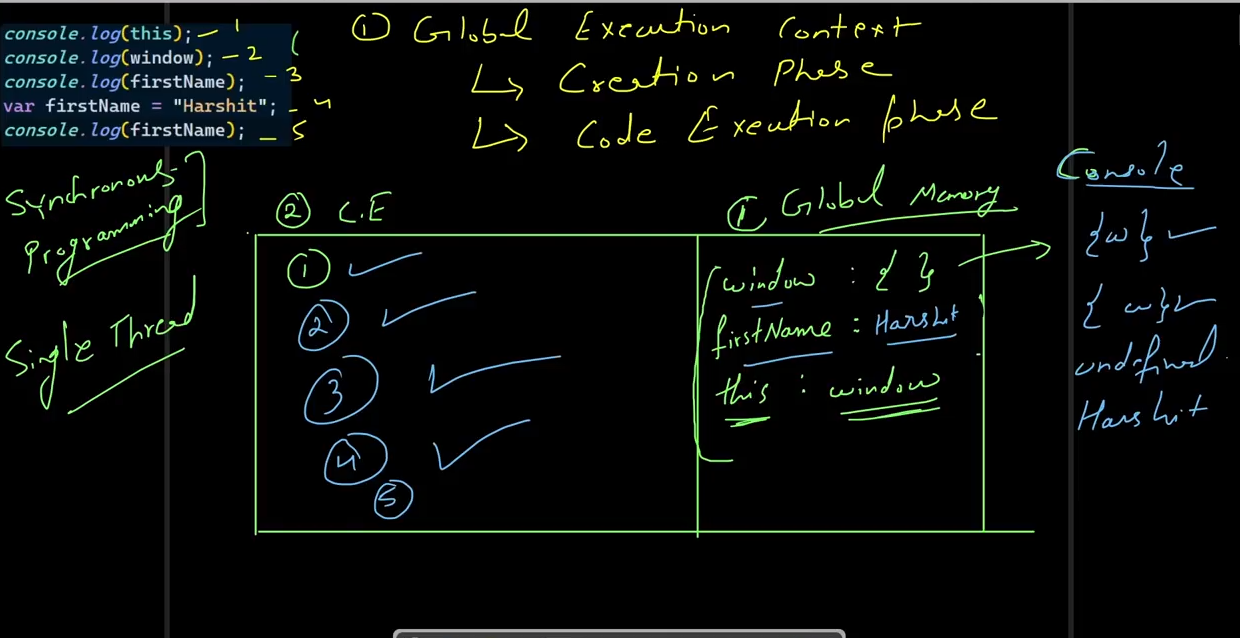 console.log(this); - 1
console.log(window); - 2
console.log(firstName); - 3
var firstName = "Harshit"; - 4
console.log(firstName); - 5
① Global Execution Context
↳ Creation Phase
↳ Code Execution phase
Synchronous
Programming
Single Thread
② C.E
①
②
③
④
⑤
① Global Memory
window : { }
firstName : Harshit
this : window
Console
{w} ✓
{ w} ✓
undefined
Harshit